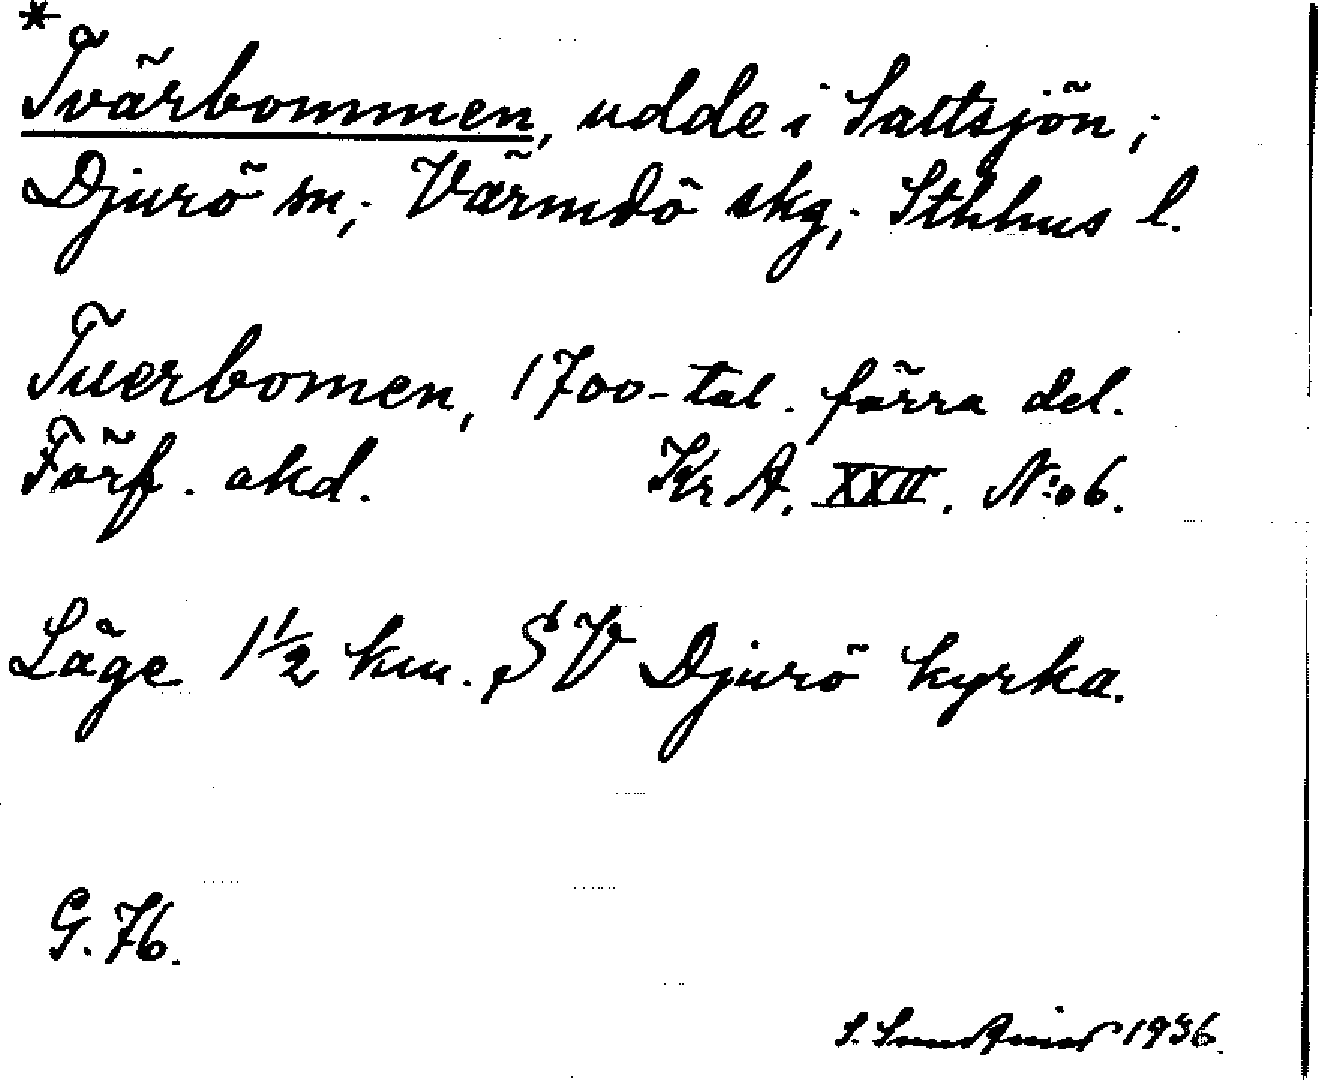 *
Tvärbommen, udde i Saltsjön;
Djurö sn; Värmdö skg; Sthlms l.
Tuerbomen, 1700-tal. förra del.
Förf. okd. Kr A. XXII. N:o 6.
Läge 1 1/2 km. SV Djurö kyrka.
G. 76.
S. 1936.